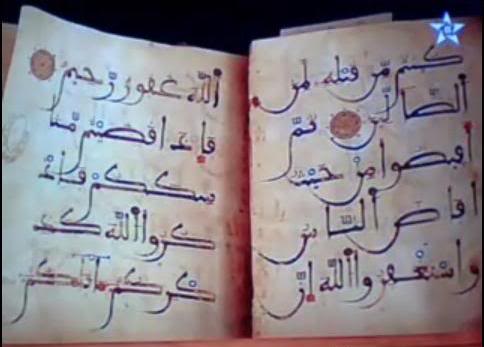 كنتم مّن قبله لمن
ٱلضّالّين ثمّ
افيضوا من حيث
افاض ٱلنّاس
واستغفروا ٱللّه إنّ
ٱللّه غفور رّحيم
فإذا قضيتم مّنا
سككم فاذ
كروا ٱللّه كذ
كركم ءاباءكم